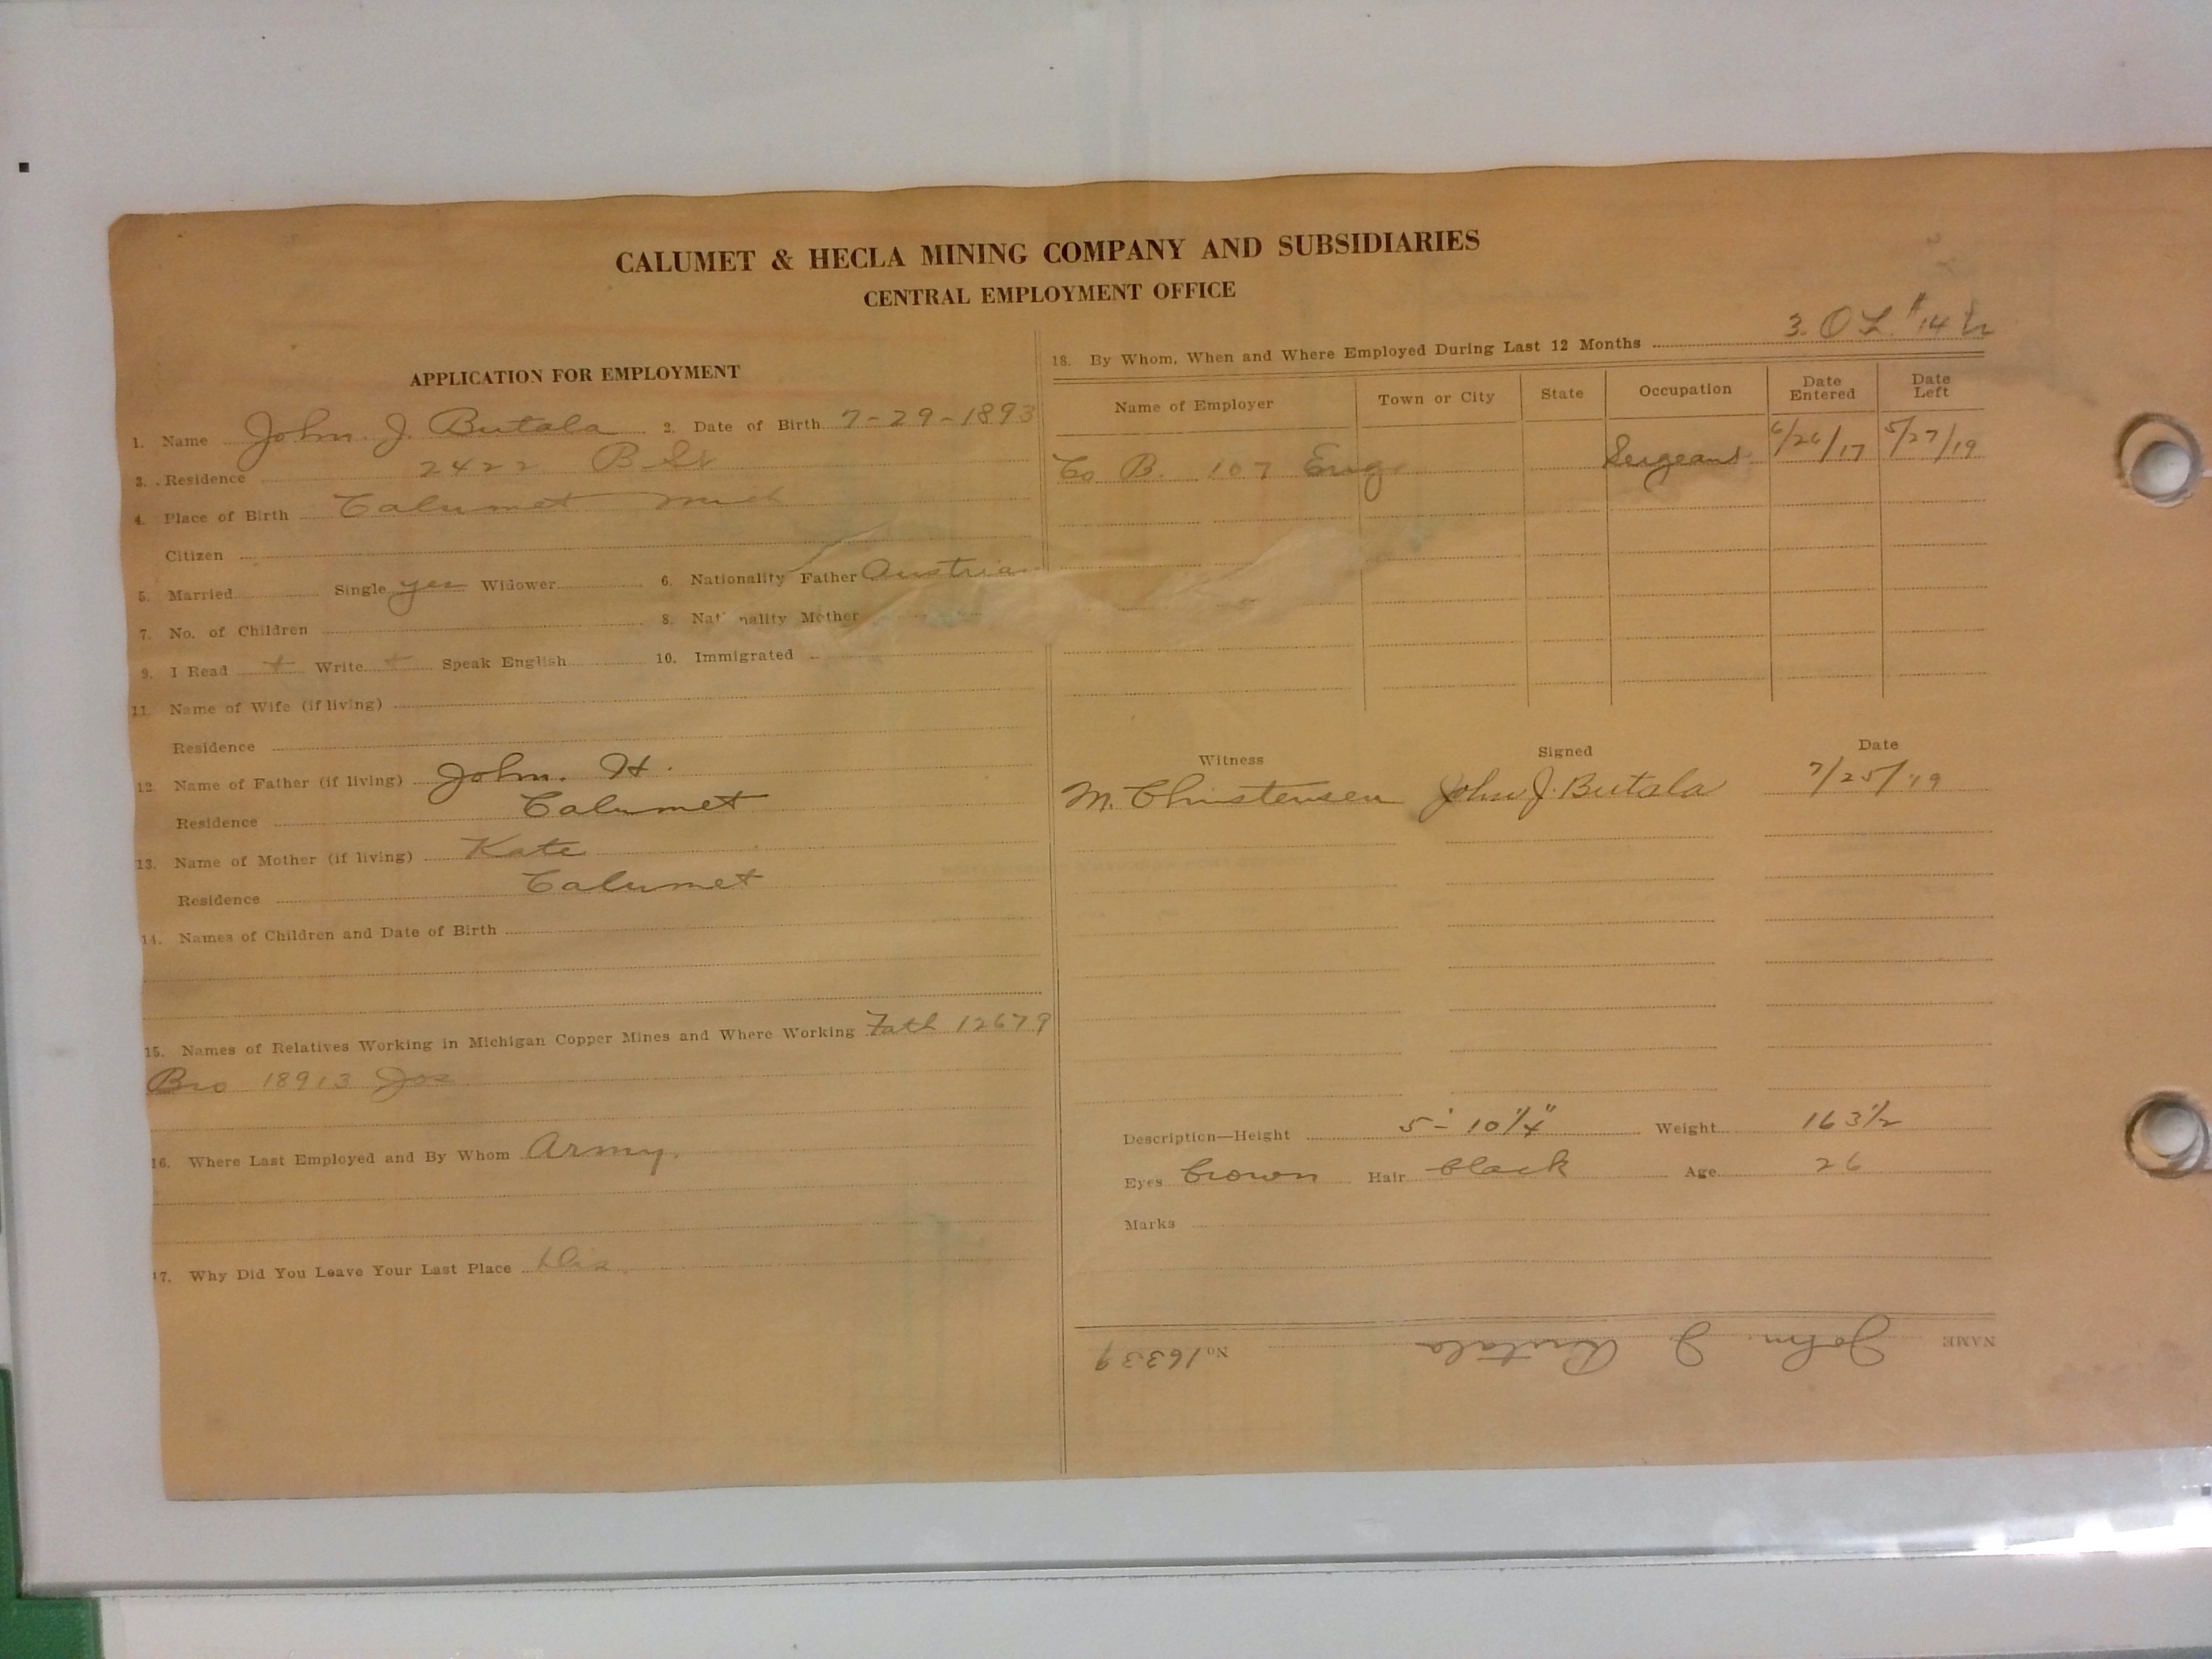 CALUMET & HECLA MINING COMPANY AND SUBSIDIARIES
CENTRAL EMPLOYMENT OFFICE
APPLICATION FOR EMPLOYMENT
1. Name John. J. Butala 2. Date of Birth 7-29-1893
3. Residence 2422 B St
4. Place of Birth Calumet Mich
Citizen
5. Married Single yes Widower 6. Nationality Father Austrian
7. No. of Children 8. Nationality Mother
9. I Read + Write + Speak English 10. Immigrated
11. Name of Wife (if living)
Residence
12. Name of Father (if living) John. H.
Residence Calumet
13. Name of Mother (if living) Kate
Residence Calumet
14. Names of Children and Date of Birth
15. Names of Relatives Working in Michigan Copper Mines and Where Working Fath 12679
Bro 18913 Jos
16. Where Last Employed and By Whom Army.
17. Why Did You Leave Your Last Place Dis.
3. O L #14
18. By Whom, When and Where Employed During Last 12 Months
Name of Employer Town or City State Occupation Date Entered Date Left
Co B. 107 Eng Sergeant 6/26/17 5/27/19
Witness Signed Date
M. Christensen John J. Butala 7/25/19
Description—Height 5'-10 1/4" Weight 163 1/2
Eyes brown Hair black Age 26
Marks
NAME John J. Butala No. 16339